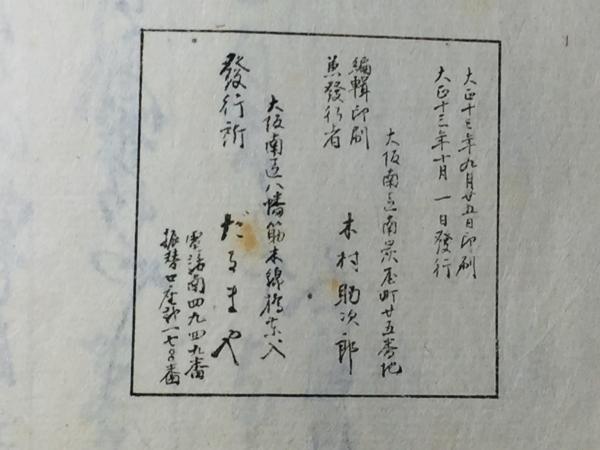 大正十三年九月廿五日印刷
大正十三年十月一日發行
大阪南區南炭屋町廿五番地
編輯印刷
兼發行者
木村助次郎
大阪南區八幡筋木綿橋東入
發行所
だるまや
電話南四九四九番
振替口座